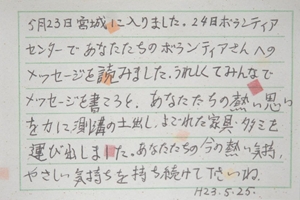 5月23日宮城に入りました。24日ボランティア
センターであなたたちのボランティアさんへの
メッセージを読みました。うれしくてみんなで
メッセージを書こうと、あなたたちの熱い思い
を力に測溝の土出し、よごれた家具・タタミを
運び出しました。あなたたちの今の熱い気持,
やさしい気持ちを持ち続けて下さいね。
H23.5.25.